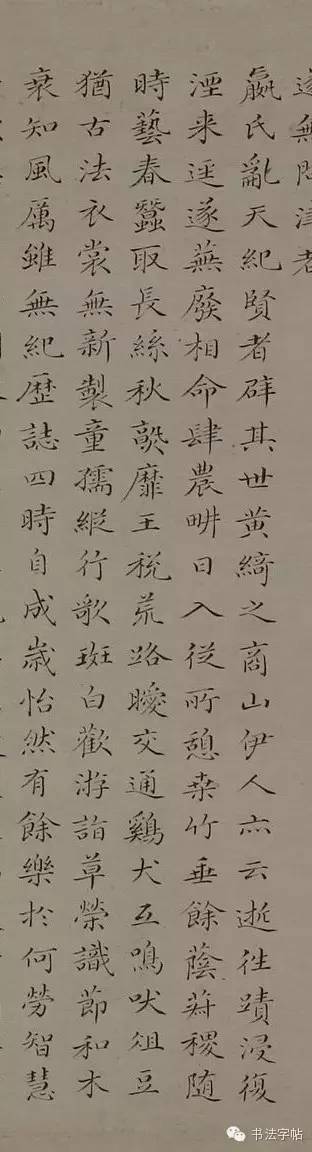 遂無問津者
嬴氏亂天紀賢者辟其世黄綺之商山伊人亦云逝往蹟浸復
湮来逕遂蕪廢相命肆農畊日入從所憩桑竹垂餘蔭菽稷随
時藝春蠶取長絲秋熟靡王税荒路曖交通鷄犬互鳴吠俎豆
猶古法衣裳無新製童孺縱行歌斑白歡游詣草榮識節和木
衰知風厲雖無紀歷誌四時自成歳怡然有餘樂於何勞智慧
书法字帖